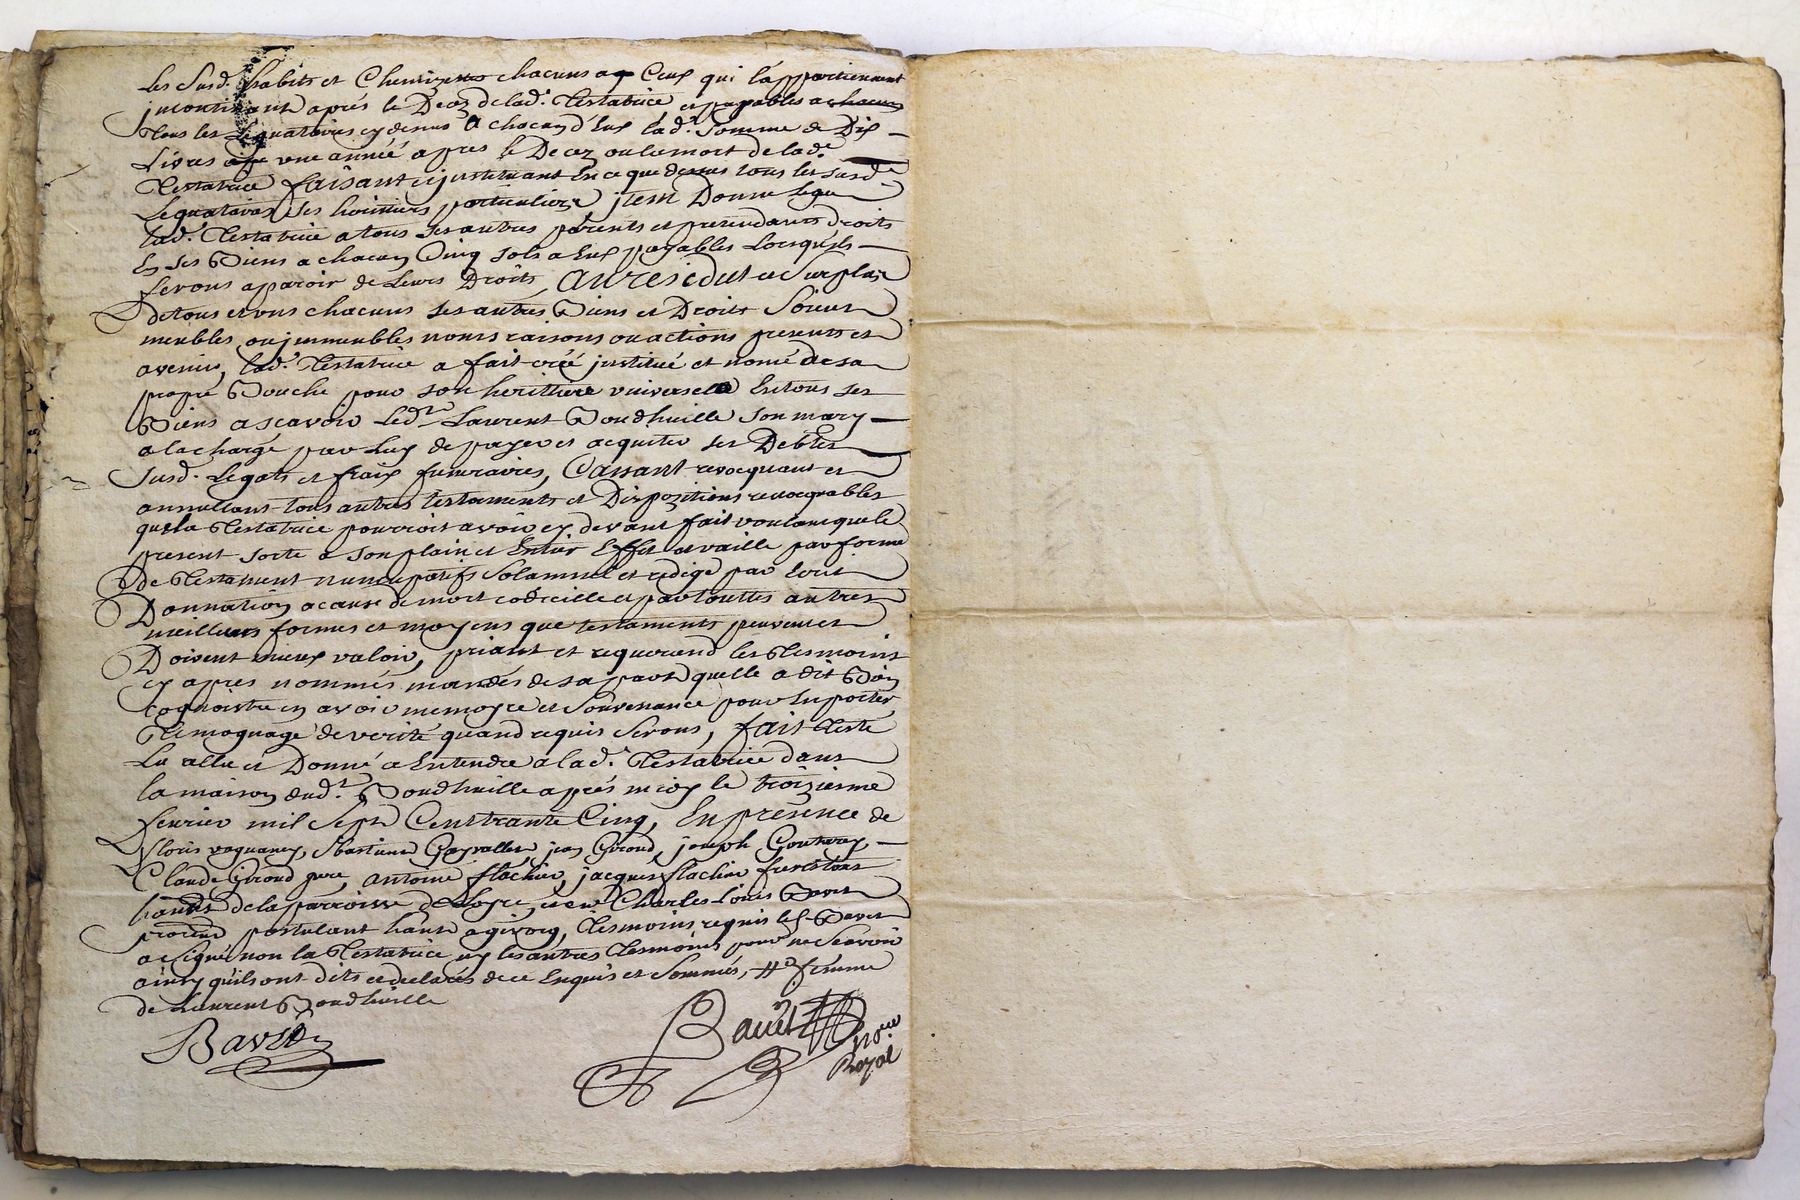 les susd. habits et chemizes chacuns a Ceux qui lappartiennent
jncontinant aprés le Decez de lad.e Testatrice et payables a
tous les Léguataires cy dessus a chacun d'Eux lad.e Somme de Dix
Livres une année apres le Decez ou la mort de lad.e
Testatrice faisant et jnstituant En ce que dessus tous les susd.
Léguataires ses heritiers particuliers, jtem Donne Legue
lad.e Testatrice a tous ses autres parents et pretendants droits
En ses Biens a chacun Cinq sols a Eux payables Lorsquils
feront aparoir de leurs Droits, Au residut et Surplus
de tous et uns chacuns ses autres Biens et Droits Soient
meubles ou jmmeubles noms raisons ou actions presents et
avenir, lad.e Testatrice a fait créé jnstitué et nomé de sa
propre Bouche pour son heritiere universele En tous ses
Biens a scavoir led.t Laurent Boudhuille son mary
a la charge par Luy de payer et acquiter ses Debtes
susd. Legats et fraix funeraires, Cassant revocquant et
annullant tous autres testaments et Dispozitions revocquables
que la Testatrice pourroit avoir cy devant fait voulant que le
present sorte a son plain et Entier Effet et vaille par forme
de Testament nuncupatifs Solamnel et redigé par Ecrit
Donnation a cause de mort codicille et par touttes autres
meilleurs formes et moyens que testaments peuvent et
Doivent mieux valoir, priant et requerend les Tesmoins
cy apres nommés mandés de sa part quelle a dit Bien
cognoistre en avoir memoyre et Souvenance pour En porter
Temognage de verité quand requis Seront, fait Testé
Lu allu et Donné a Entendre a lad.e Testatrice dans
la maison dud.t Boudhuille aprés midy le troizieme
fevrier mil Sept Cent trante Cinq, En présence de
floris vaguaney, jean Giroud, joseph
Claude Giroud pere, antoine flachier, jacques flachier
habits de la parroisse de Loyre, et de me Charles Louis Bavet
postulant habts a givors, Tesmoins requis led. Bavet
a Signé non la Testatrice ny les autres Tesmoins pour ne Scavoir
ainsy quils ont dits et declarés de ce Enquis et Sommés, # femme
de Laurent Boudhuille
Bavet
Bavet no.re
Royal